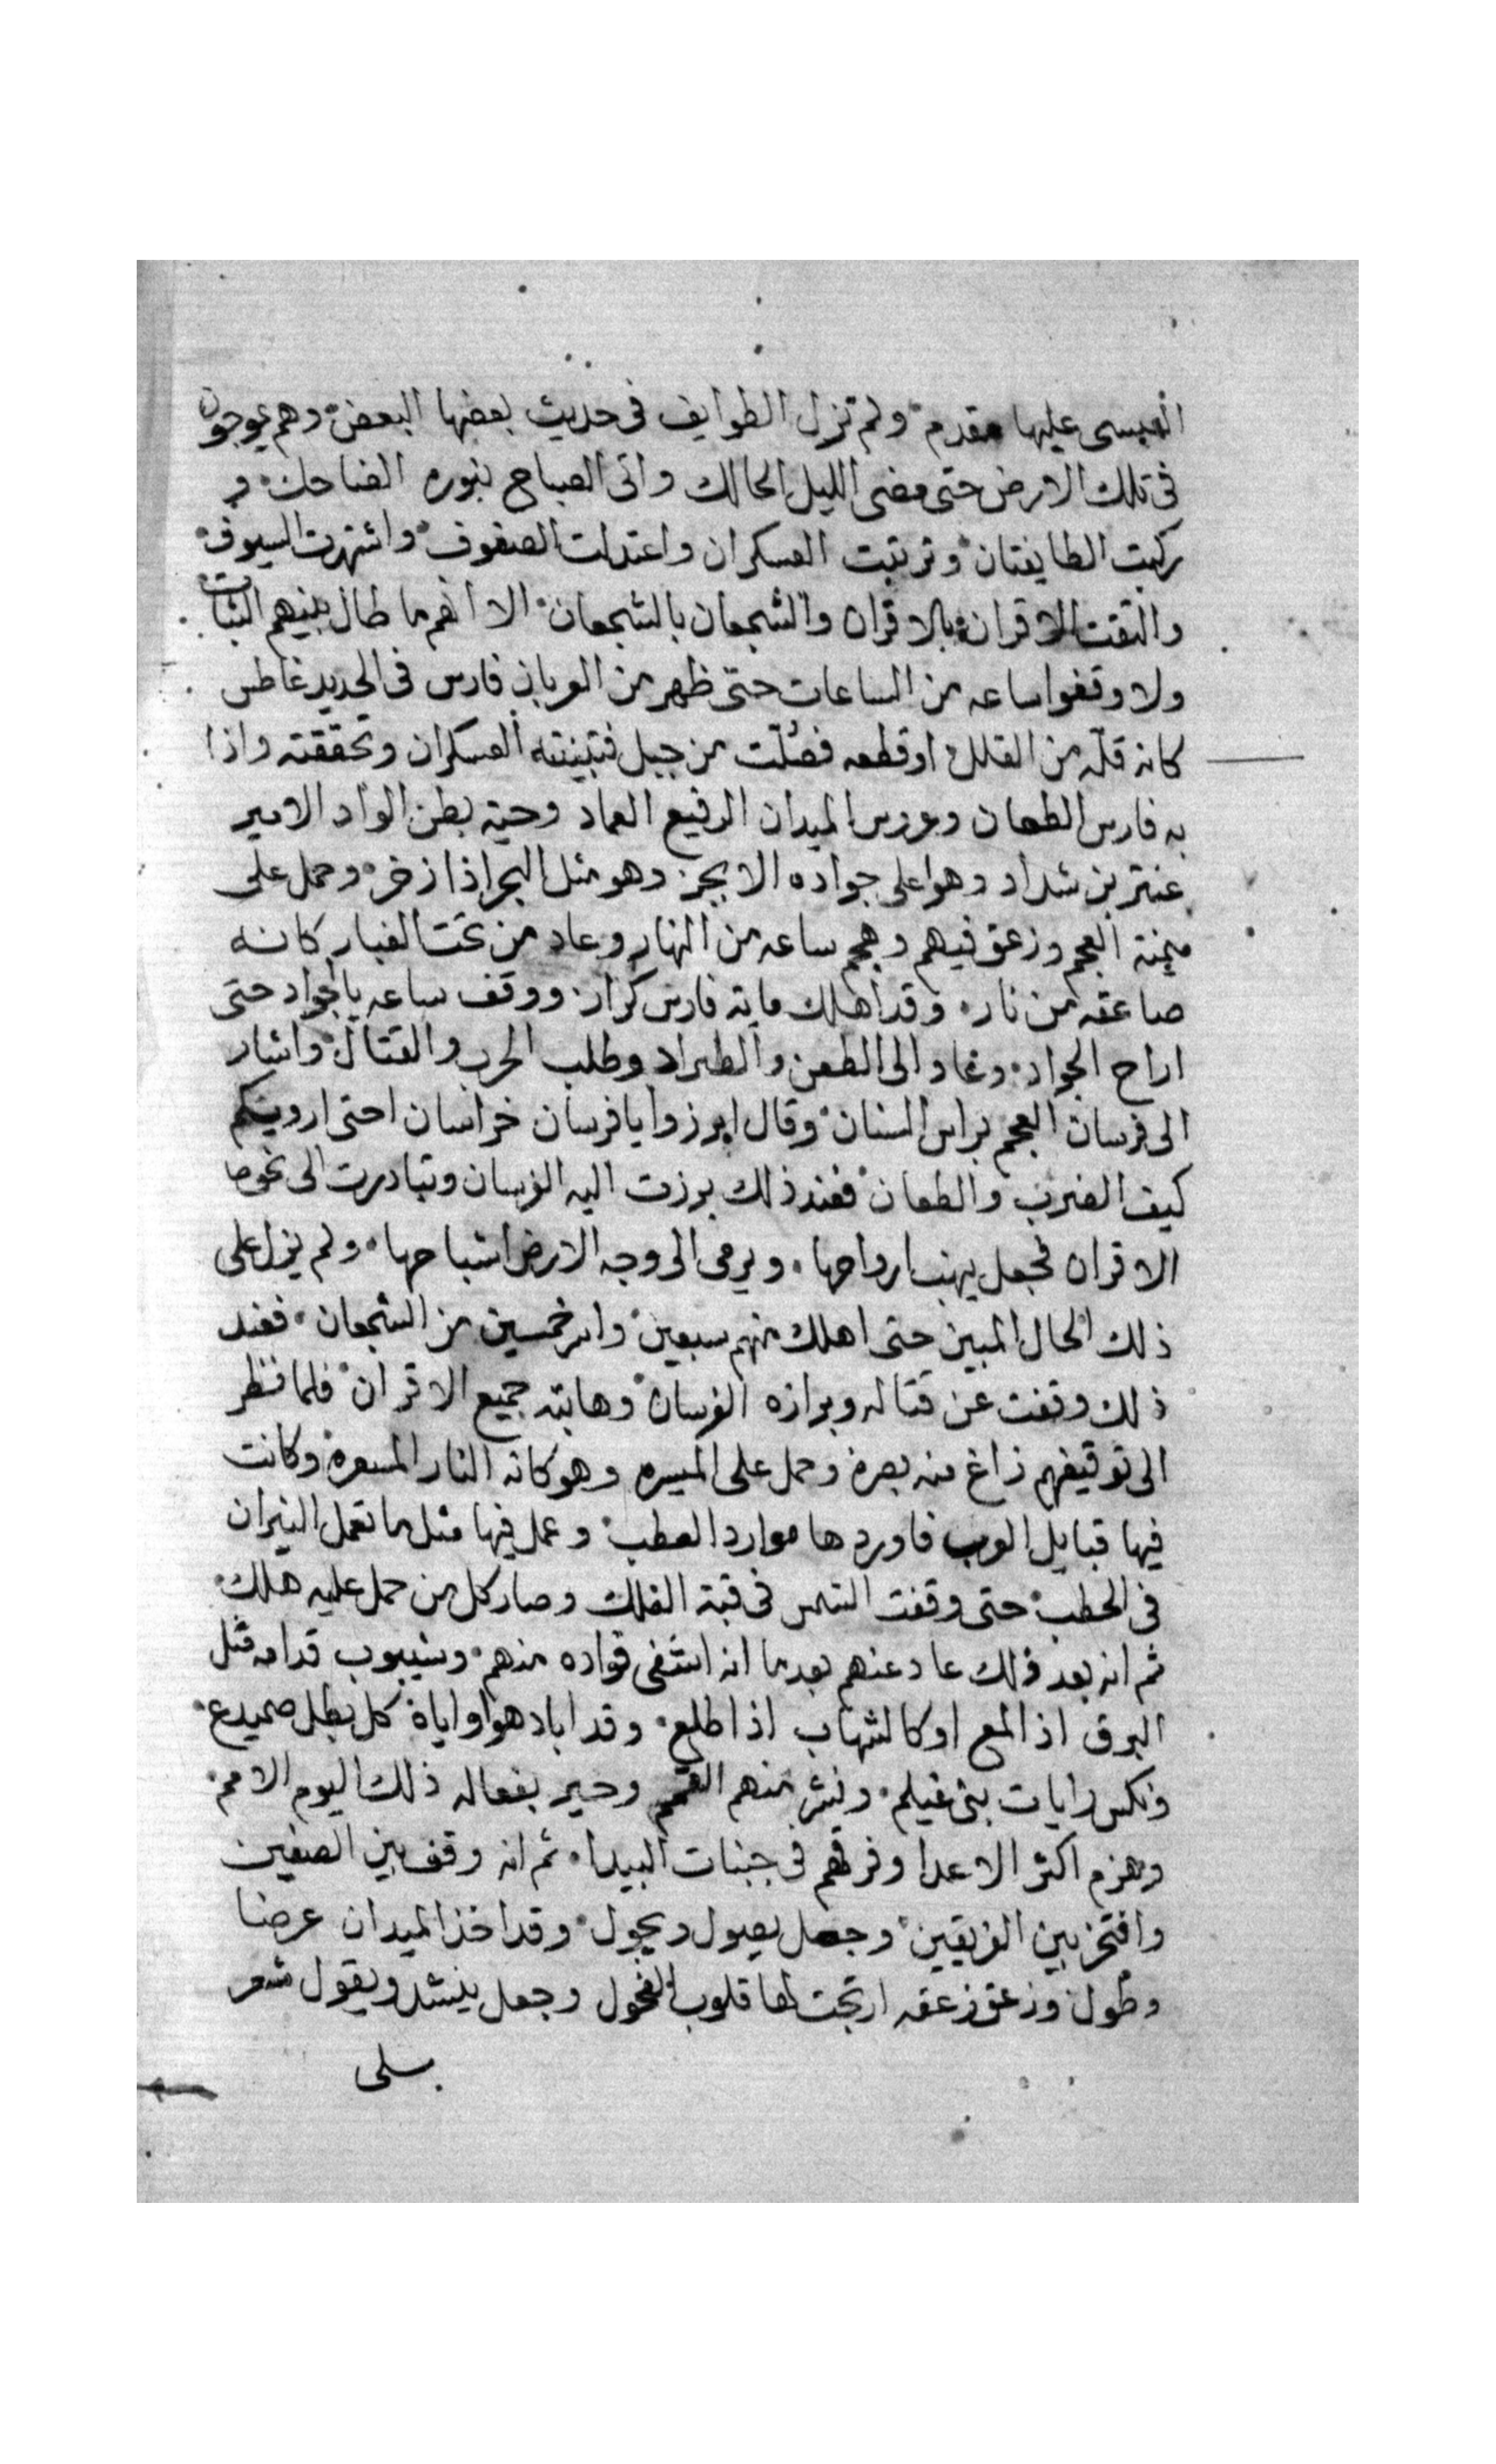 العبسى عليها مقدم ولم تزل الطوايف فى حديث بعضها البعض وهم يموجون
فى تلك الارض حتى مضى الليل الحالك واتى الصباح بنوره الضاحك و
ركبت الطايفتان وترتبت العسكران واعتدلت الصفوف واشتهرت السيوف
والتقت الاقران بالاقران والشجعان بالشجعان الا انهم ما طال بينهم الثبات
ولا وقفوا ساعه من الساعات حتى ظهر من العربان فارس فى الحديد غاطس
كانه قلّه من القلل او قطعه فصّلت من جبل فتبينته العسكران وتحققته واذا
به فارس الطعان وعروس الميدان الرفيع العماد وحية بطن الواد الامير
عنتر بن شداد وهوا على جواده الابجر وهو مثل البحر اذا زخر وحمل على
ميمنة العجم وزعق فيهم وهجم ساعه من النهار وعاد من تحت الغبار كانه
صاعقه من نار وقد اهلك مايه فارس كرار ووقف ساعه بالجواد حتى
اراح الجواد وعاد الى الطعن والطراد وطلب الحرب والقتال واشار
الى فرسان العجم براس السنان وقال ابرزوا يا فرسان خراسان احتى اروينكم
كيف الضرب والطعان فعند ذلك برزت اليه الفرسان وتبادرت الى نحوه
الاقران فجعل ينهب ارواحها ويرمى الى وجه الارض اشباحها ولم يزل على
ذلك الحال المبين حتى اهلك منهم سبعين واسر خمسين من الشجعان فعند
ذلك وقفت عن قتاله وبرازه الفرسان وهابته جميع الاقران فلما نظر
الى توقيفهم زاغ منه بصره وحمل على الميسره وهو كانه النار المسعره وكانت
فيها قبايل العرب فاوردها موارد العطب وعمل فيها مثل ما تعمل النيران
فى الحطب حتى وقفت الشمس فى قبة الفلك وصار كل من حمل عليه هلك
ثم انه بعد ذلك عاد عنهم بعد ما انه اشتفى فواده منهم وشيبوب قدامه مثل
البرق اذ المع او كالشهاب اذا طلع وقد اباد هوا واياه كل بطل صميدع
ونكس رايات بنى غيلم ونثر منهم القمم وحير بفعاله ذلك اليوم الامم
وهزم اكثر الاعدا وفرقهم فى جنبات البيدا ثم انه وقف بين الصفين
وافتخر بين الفريقين وجعل يصول ويجول وقد اخذ الميدان عرضا
وطول وزعق زعقه ارتجت لها قلوب الفحول وجعل ينشد ويقول شعر
سلى